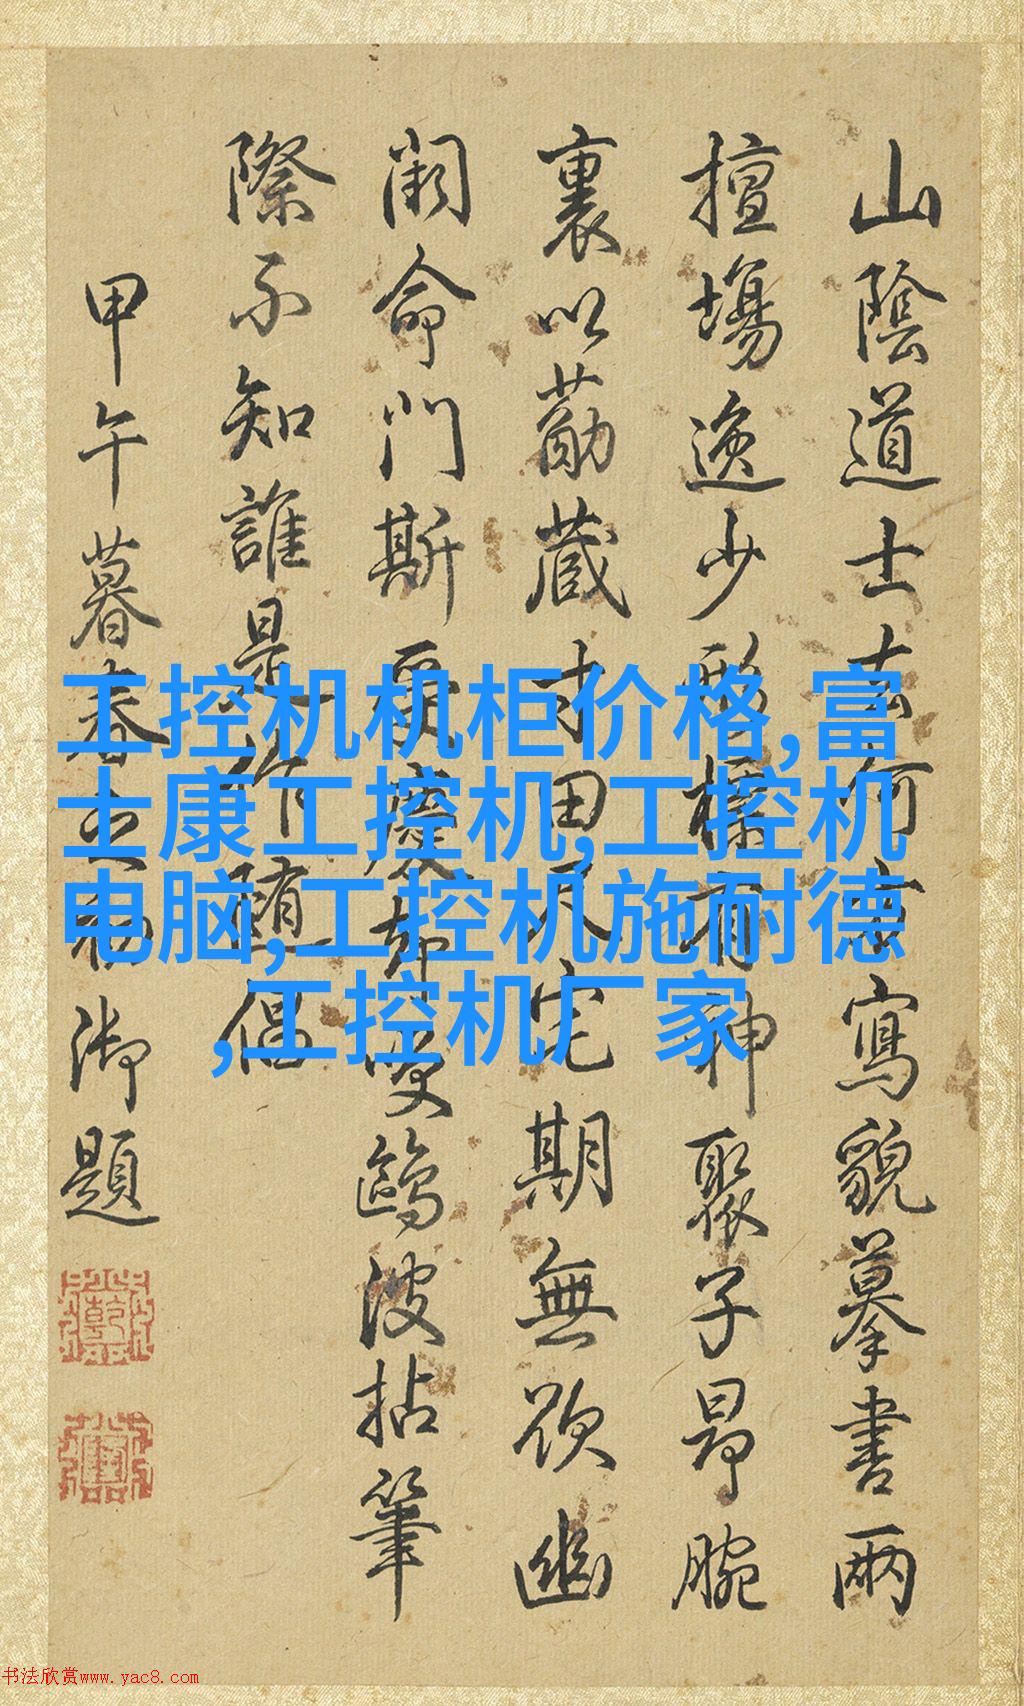 山陰道士去何寫貌摹書兩
擅場逸少形模有神聚子昂腕
裏以勗藏寸田尺宅期無欲幽
闕命門斯要鷗波拈筆
際不知誰是墮偶
甲午暮春之初御題
工控机机柜价格,富
士康工控机,工控机
电脑,工控机施耐德
,工控机厂家
书法欣赏www.yac8.com